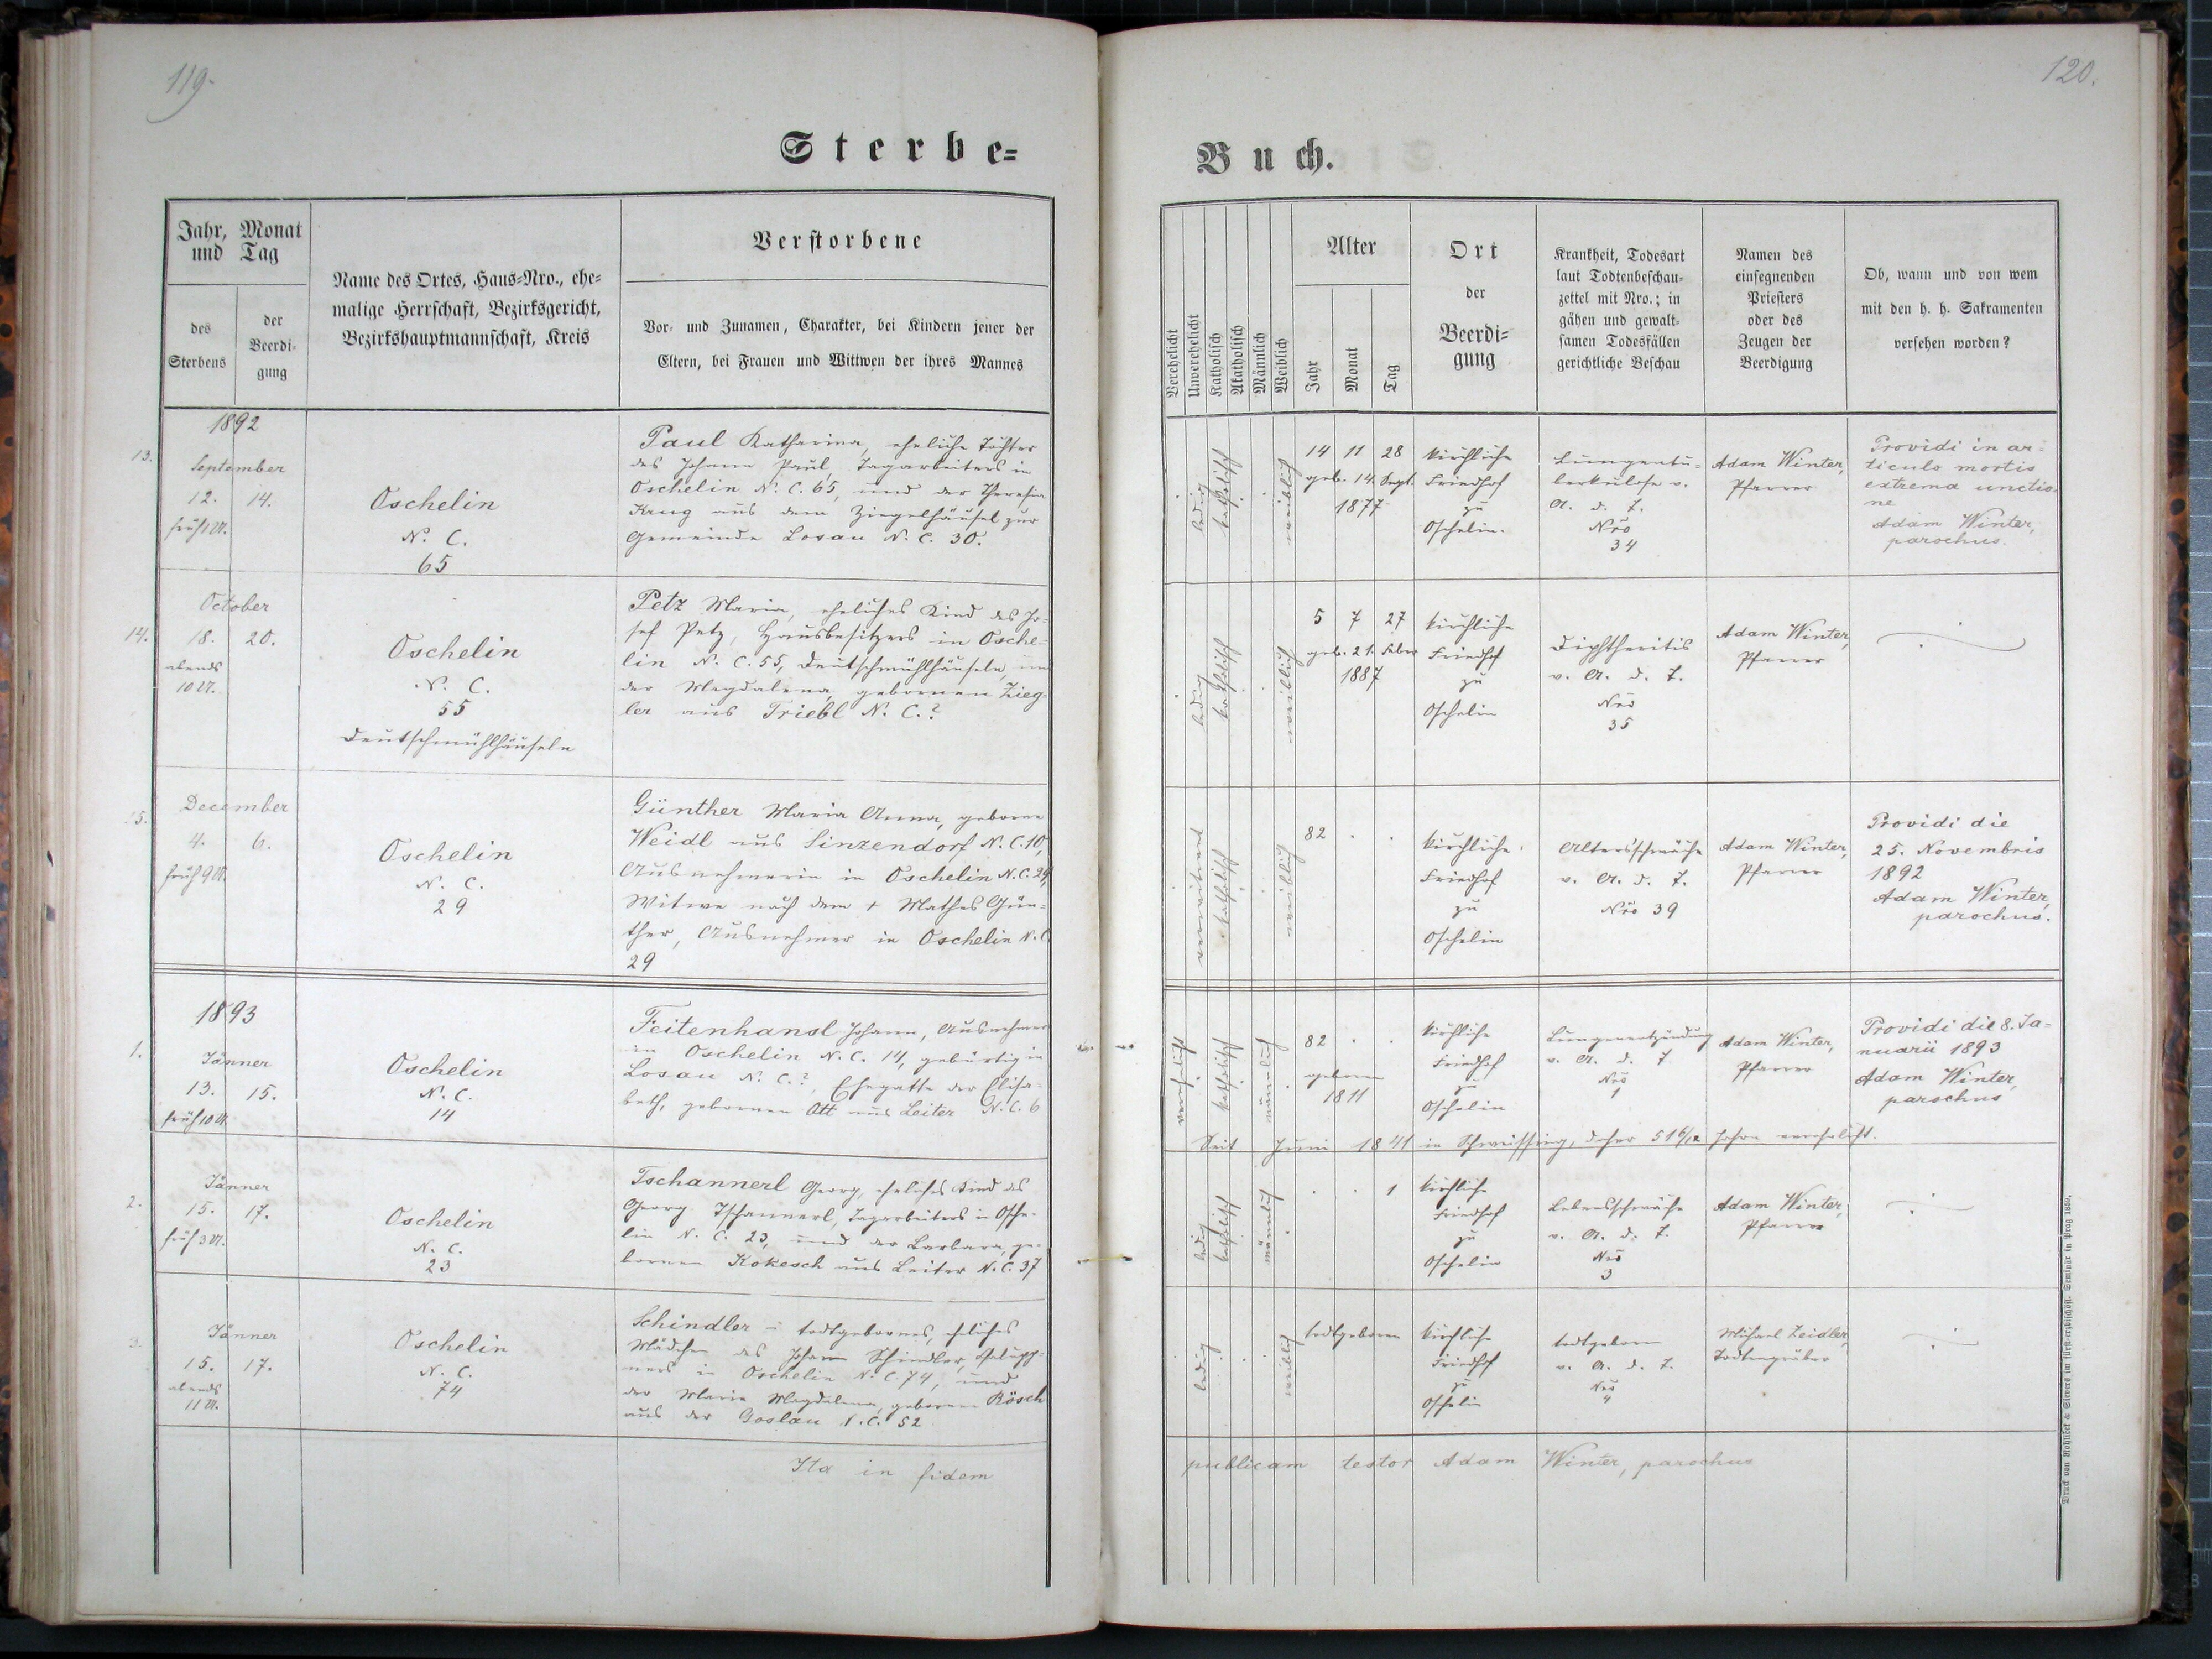 119.
Sterbe=
Jahr, Monat
und Tag
des
Sterbens
der
Beerdi-
gung
Name des Ortes, Haus=Nro., ehe=
malige Herrschaft, Bezirksgericht,
Bezirkshauptmannschaft, Kreis
Verstorbene
Vor- und Zunamen, Charakter, bei Kindern jener der
Eltern, bei Frauen und Wittwen der ihres Mannes
1892
13.
September
12. 14.
früh 1 U.
Oschelin
N. C.
65
Paul Katharina, eheliche Tochter
des Johann Paul, Tagarbeiters in
Oschelin N. C. 65, und der Theresia
Krug aus dem Ziegelhäusel zur
Gemeinde Losau N. C. 30.
14.
October
18. 20.
abends
10 U.
Oschelin
N. C.
55
Deutschmühlhäuseln
Petz Maria, eheliches Kind des Jo-
sef Petz, Hausbesitzers in Osche-
lin N. C. 55, Deutschmühlhäuseln, und
der Magdalena, gebornen Zieg-
ler aus Triebl N. C.?
15.
December
4. 6.
früh 9 U.
Oschelin
N. C.
29
Günther Maria Anna, geborne
Weidl aus Sinzendorf N. C. 10,
Ausnehmerin in Oschelin N. C. 29,
Witwe nach dem + Mathes Gün-
ther, Ausnehmer in Oschelin N. C.
29
1893
1.
Jänner
13. 15.
früh 10 U.
Oschelin
N. C.
14
Feitenhansl Johann, Ausnehmer
in Oschelin N. C. 14, gebürtig in
Losau N. C.?, Ehegatte der Elisa-
beth, gebornen Ott aus Leiter N. C. 6
2.
Jänner
15. 17.
früh 3 U.
Oschelin
N. C.
23
Tschannerl Georg, eheliches Kind des
Georg Tschannerl, Tagarbeiters in Osche-
lin N. C. 23, und der Barbara, ge-
bornen Kokesch aus Leiter N. C. 37
3.
Jänner
15. 17.
abends
11 U.
Oschelin
N. C.
74
Schindler – todtgebornes, eheliches
Mädchen des Johann Schindler, Chalupp-
ners in Oschelin N. C. 74, und
der Maria Magdalena, gebornen Rösch
aus der Goslau N. C. 52
Ita in fidem
120.
Buch.
Verehelicht
Unverehelicht
Katholisch
Akatholisch
Männlich
Weiblich
Alter
Jahr
Monat
Tag
Ort
der
Beerdi=
gung
Krankheit, Todesart
laut Todtenbeschau-
zettel mit Nro.; in
gähen und gewalt-
samen Todesfällen
gerichtliche Beschau
Namen des
einsegnenden
Priesters
oder des
Zeugen der
Beerdigung
Ob, wann und von wem
mit den h. h. Sakramenten
versehen worden?
ledig
katholisch
weiblich
14 11 28
geb. 14. Sept.
1877
kirchliche
Friedhof
zu
Oschelin.
Lungentu-
berkulose v.
A. d. T.
Nro
34
Adam Winter,
Pfarrer
Providi in ar-
ticulo mortis
extrema unctio-
ne
Adam Winter,
parochus.
ledig
katholisch
weiblich
5 7 27
geb. 21. Feber
1887
kirchliche
Friedhof
zu
Oschelin
Diphtheritis
v. A. d. T.
Nro
35
Adam Winter,
Pfarrer
verwitwend
katholisch
weiblich
82
kirchliche
Friedhof
zu
Oschelin
Altersschwäche
v. A. d. T.
Nro 39
Adam Winter,
Pfarrer
Providi die
25. Novembris
1892
Adam Winter,
parochus.
verehelicht
katholisch
männlich
82
geboren
1811
kirchliche
Friedhof
zu
Oschelin
Lungenentzündung
v. A. d. T
Nro
1
Adam Winter,
Pfarrer
Providi die 8. Ja-
nuarii 1893
Adam Winter,
parochus
Seit Juni 1841 in Schweissing, daher 51 6/12 Jahre verehelicht.
ledig
katholisch
männlich
1
kirchliche
Friedhof
zu
Oschelin
Lebensschwäche
v. A. d. T.
Nro
3
Adam Winter,
Pfarrer
ledig
weiblich
todtgeboren
kirchliche
Friedhof
zu
Oschelin
todtgeboren
v. A. d. T.
Nro
4
Michael Zeidler,
Todtengräber
publicam testor Adam Winter, parochus
Druck von Rohliček & Sievers im fürst-erzbischöfl. Seminär in Prag 1859.